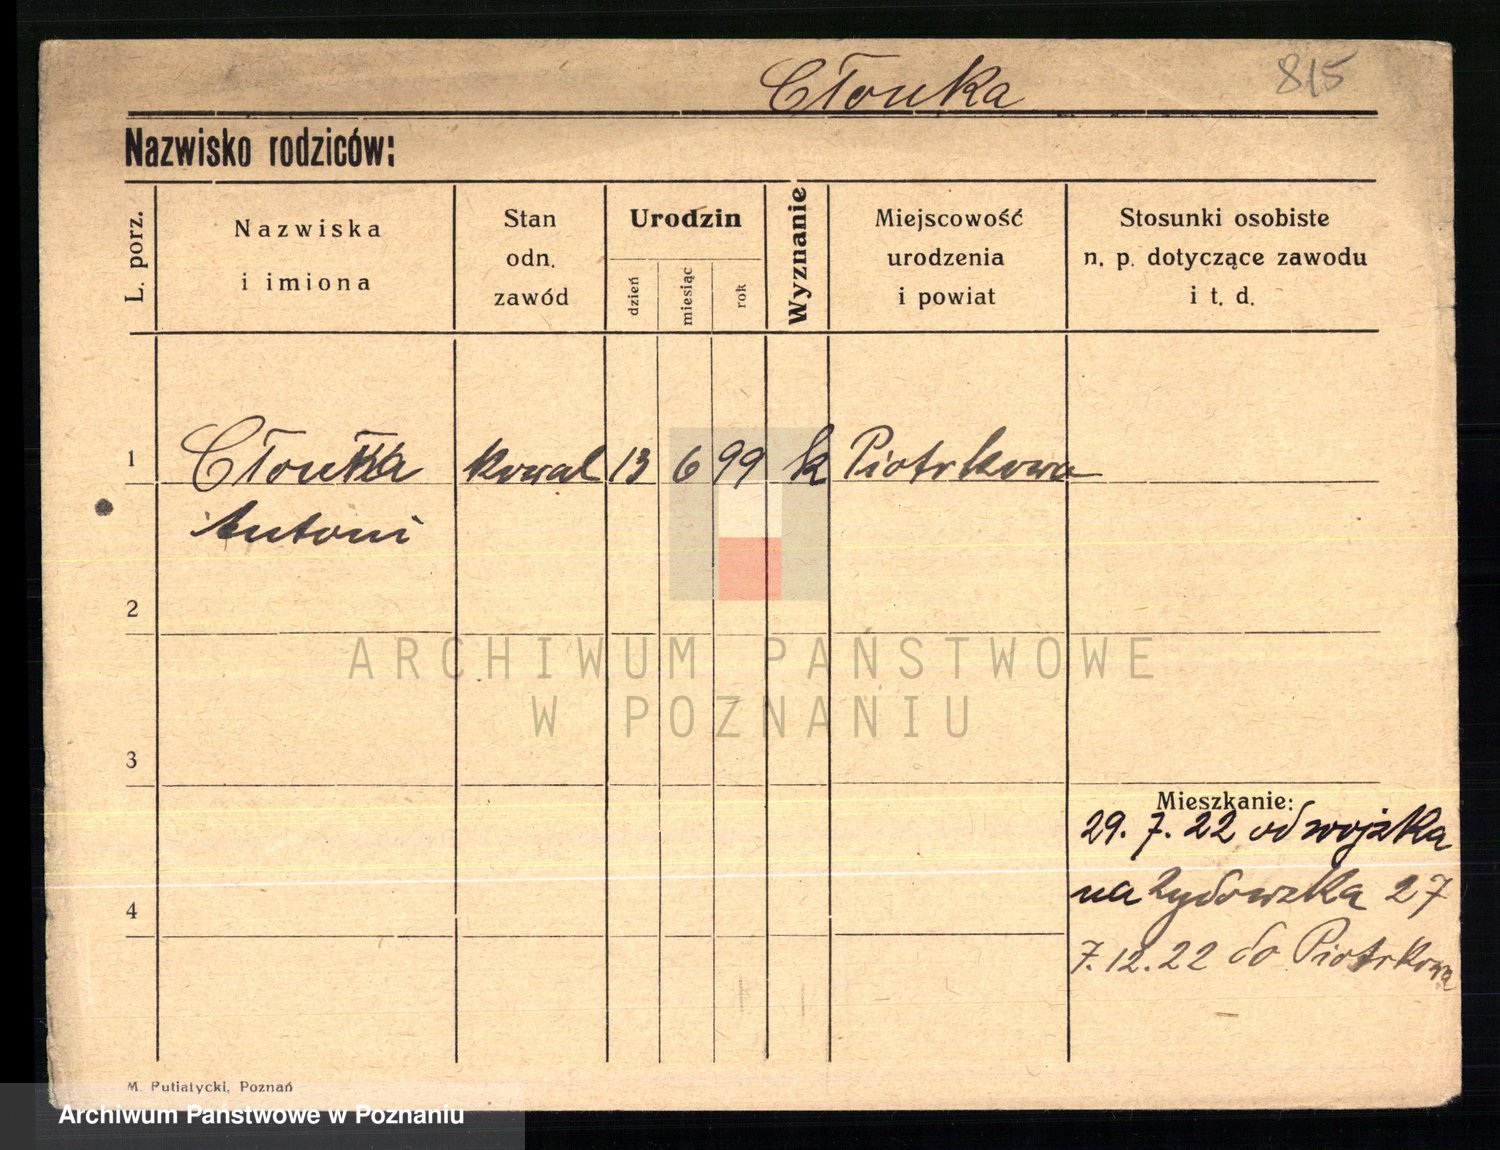 Cłonka
815
Nazwisko rodziców:
L. porz.
Nazwiska
i imiona
Stan
odn.
zawód
Urodzin
dzień
miesiąc
rok
Wyznanie
Miejscowość
urodzenia
i powiat
Stosunki osobiste
n. p. dotyczące zawodu
i t. d.
1 Cłonka kowal 13 6 99 k Piotrkowa
Antoni
2
ARCHIWUM PAŃSTWOWE
W POZNANIU
3
Mieszkanie:
29. 7. 22 od wojska
4
na Żydowska 27
7. 12. 22 do Piotrkowa
M. Putiatycki, Poznań
Archiwum Państwowe w Poznaniu